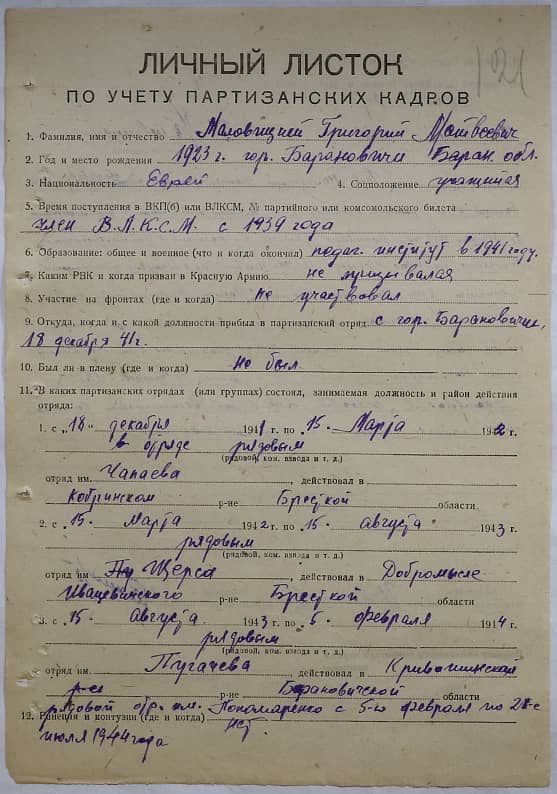 121
ЛИЧНЫЙ ЛИСТОК
ПО УЧЕТУ ПАРТИЗАНСКИХ КАДРОВ
1. Фамилия, имя и отчество Григорий Матвеевич
2. Год и место рождения 1923 г. гор. Барановичи Баран. обл.
3. Национальность Еврей 4. Соцположение учащийся
5. Время поступления в ВКП(б) или ВЛКСМ, № партийного или комсомольского билета
член В.Л.К.С.М. с 1939 года
6. Образование: общее и военное (что и когда окончил) педаг. институт в 1941 году.
7. Каким РВК и когда призван в Красную Армию не призывался
8. Участие на фронтах (где и когда) не участвовал
9. Откуда, когда и с какой должности прибыл в партизанский отряд с гор. Барановичи,
18 декабря 41 г.
10. Был ли в плену (где и когда) не был
11. В каких партизанских отрядах (или группах) состоял, занимаемая должность и район действия
отряда:
1. с „18" декабря 1941 г. по 15 Марта 1942 г.
в отряде рядовым
(рядовой, ком. взвода и т. д.)
отряд им. Чапаева, действовал в
Кобринском р-не Бресткой области
2. с 15 марта 1942 г. по 15 августа 1943 г.
рядовым
(рядовой, ком. взвода и т. д.)
отряд им Щорса, действовал в Добромысле
Ивацевичского р-не Бресткой области
3. с 15 Августа 1943 г. по 5 февраля 1944 г.
рядовым
(рядовой, ком. взвода и т. д.)
отряд им. Пугачева действовал в Кривошинском
р-не Барановичской области
рядовой отр. им. Пономаренко с 5-го февраля по 28-е
12. Ранения и контузии (где и когда) нет
июля 1944 года